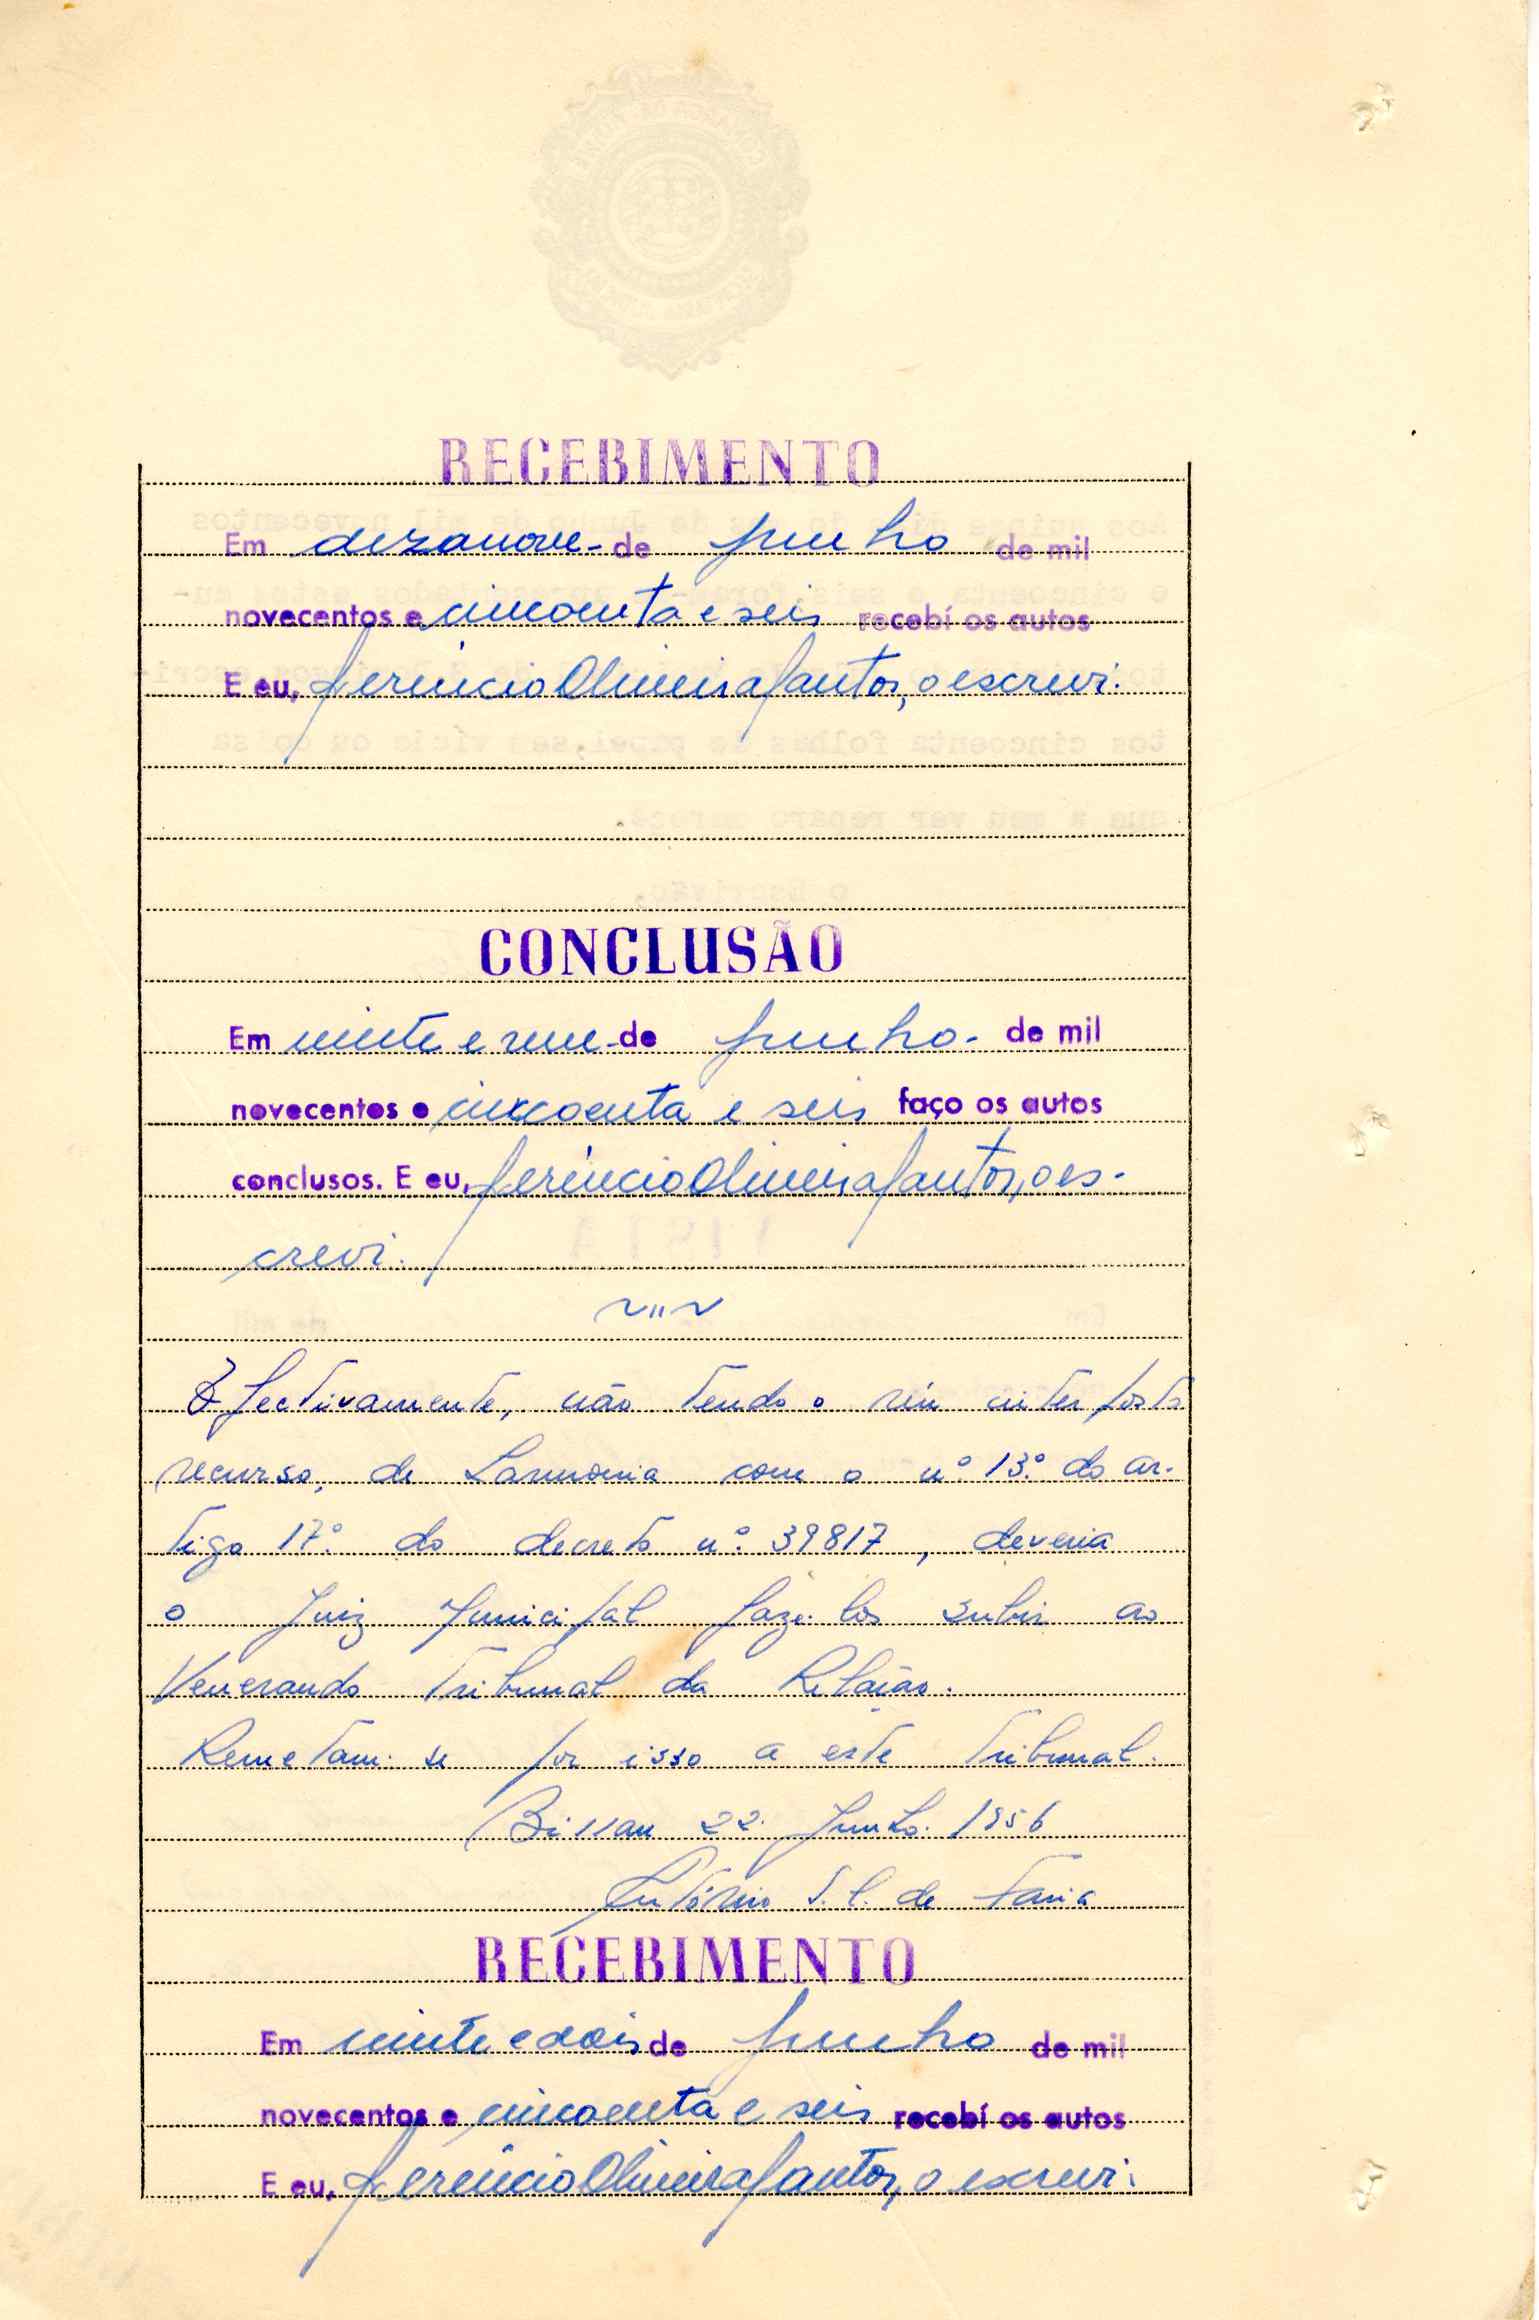 RECEBIMENTO
Em dezanove - de Junho de mil
novecentos e cincoenta e seis recebí os autos
E eu, Oliveira Santos, o escrevi.
CONCLUSÃO
Em vinte e um - de Junho - de mil
novecentos e cincoenta e seis faço os autos
conclusos. E eu, Oliveira Santos, o es-
crevi.
Efectivamente, não tendo o réu interposto
recurso, de harmonia com o nº 13º do ar-
tigo 17º do decreto nº 39817, deveria
o Juiz Municipal fazê-los subir ao
Venerando Tribunal da Relação.
Remetam-se por isso a este Tribunal.
Bissau 22 Junho 1956
António de Faria
RECEBIMENTO
Em vinte e dois de Junho de mil
novecentos e cincoenta e seis recebí os autos
E eu, Oliveira Santos, o escrevi.